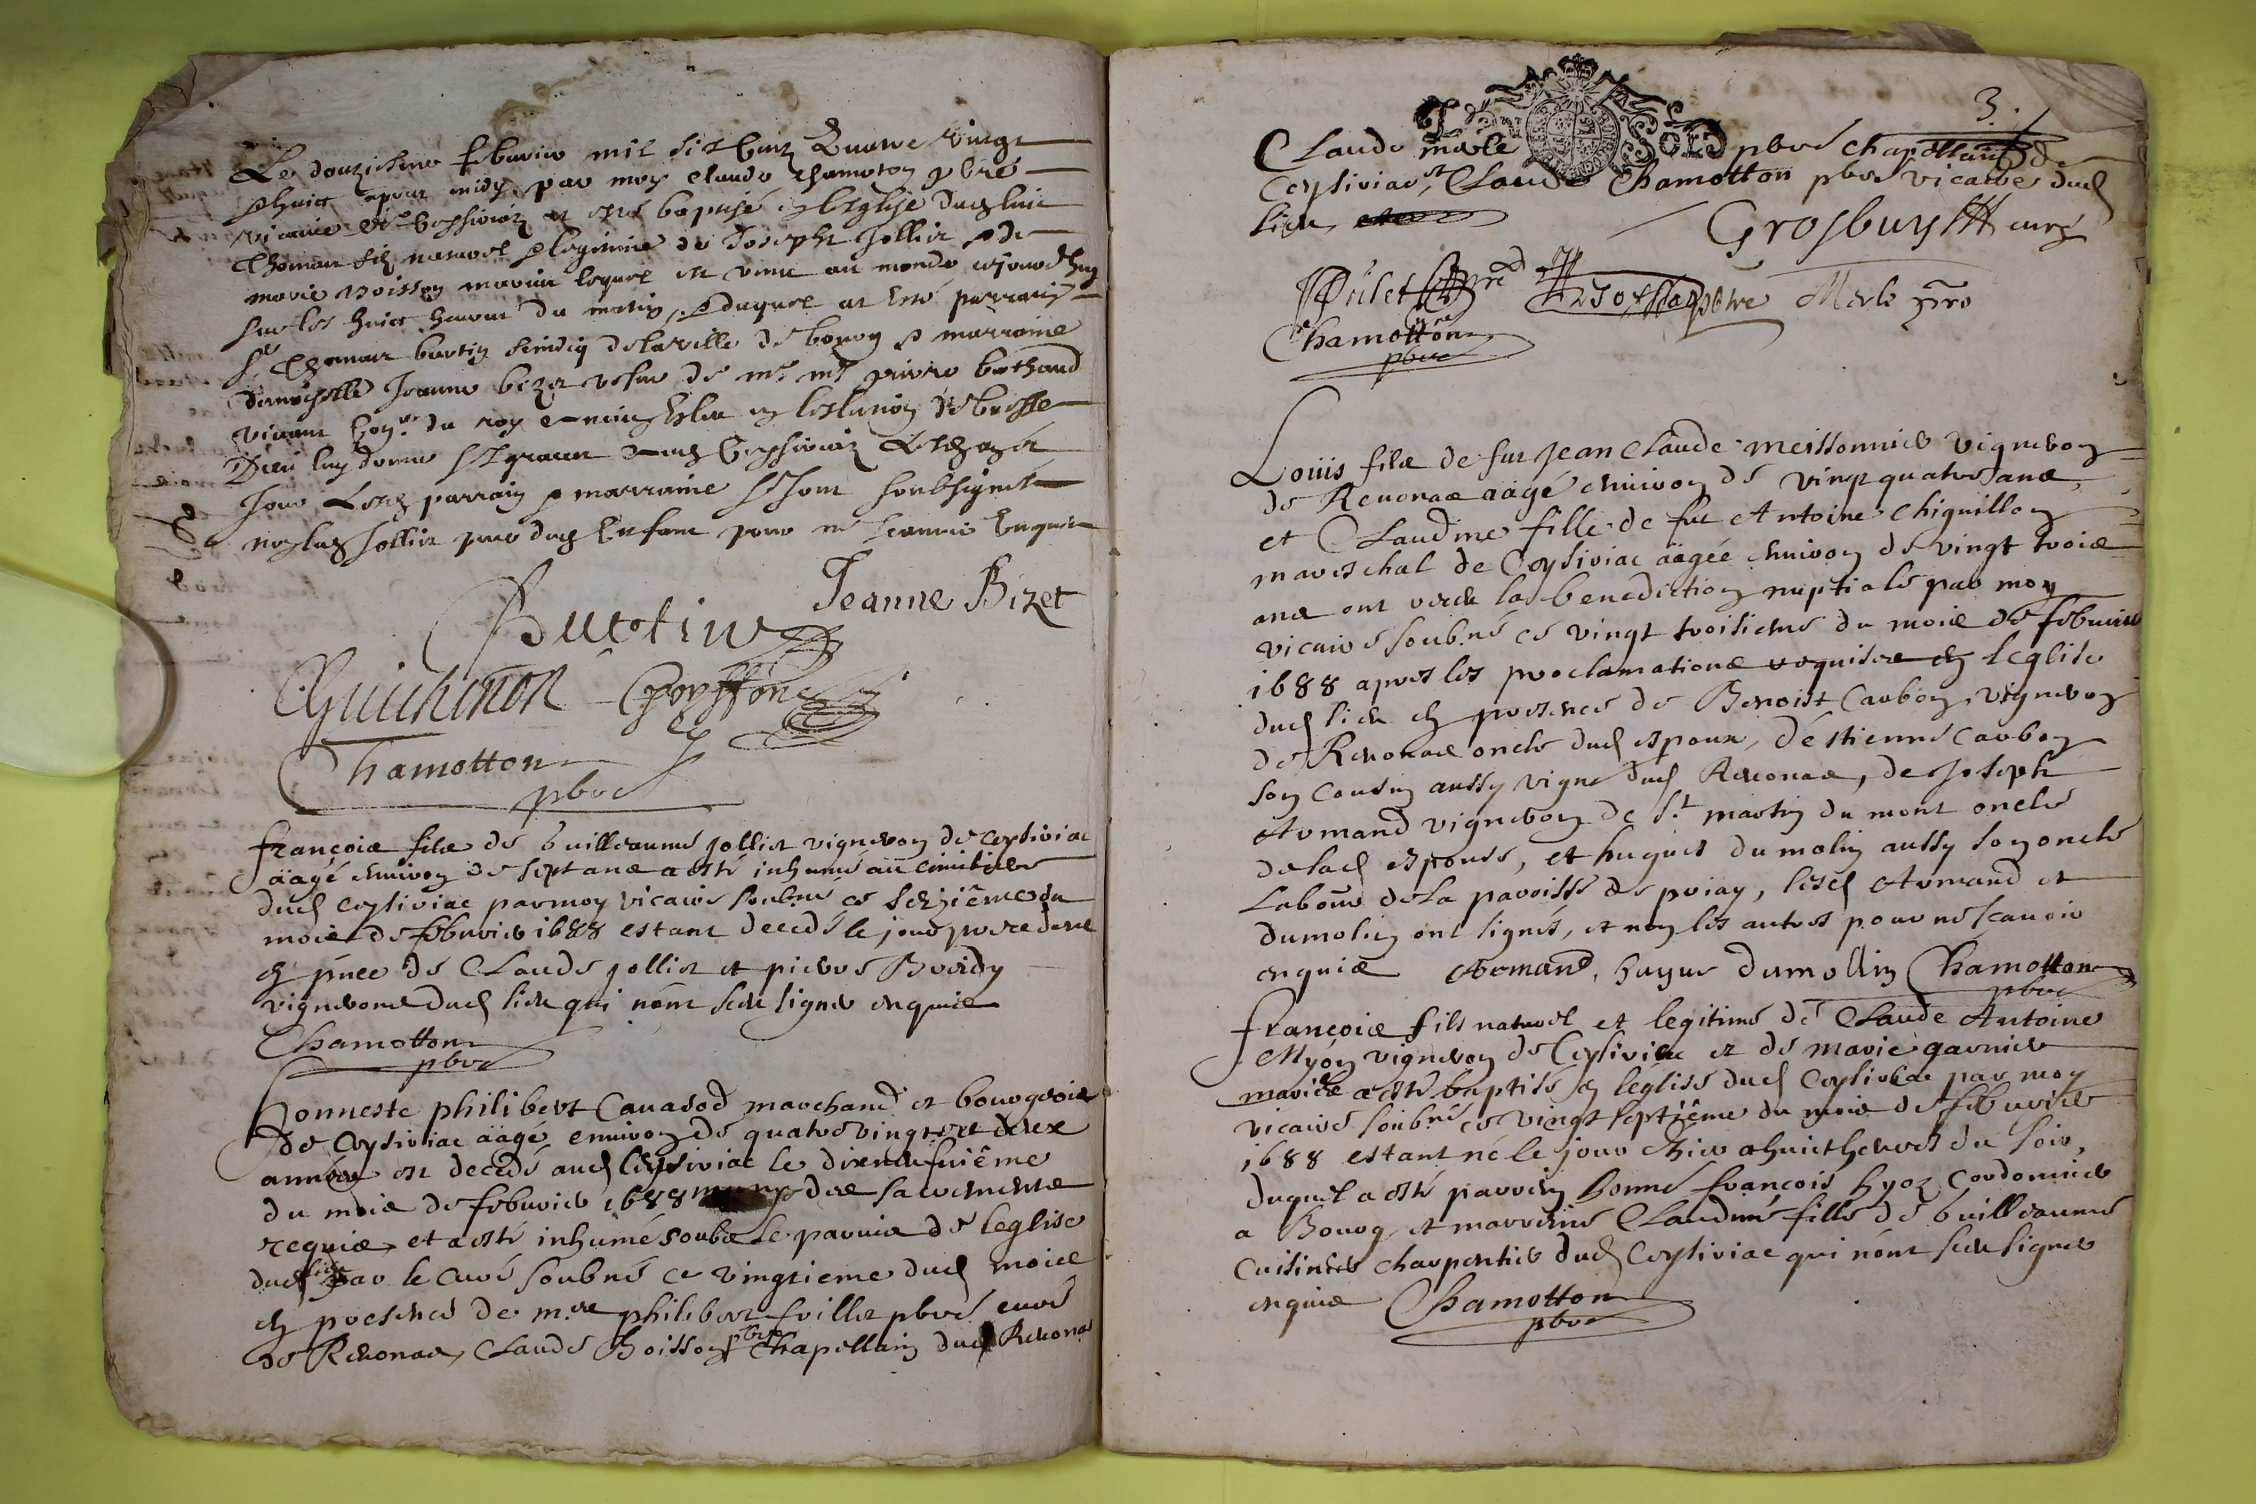 Le douziesme febvrier mil six cent quatre vingt
& huict apres midy par moy Claude Chamotton pbre
vicaire de Ceyssiria a esté baptisé en leglise dud lieu
Thomas filz naturel & legitime de Joseph Jollier & de
marie Boisson mariés lequel est venu au monde cejourdhuy
sur les huict heures du matin, & duquel at esté parrain
Sr Thomas burtin sindiq de la ville de bourg & marraine
damoyselle Jeanne bizet vefve de
vivant du roy en leslection de bresse
Dieu luy donne sa grace
Jour parrain & marraine se sont soubsignés
non led Jollier pere dud Enfant pour ne scavoir Enquis
Jeanne Bizet
Burtin
Guichenon Goyffon
Chamotton
pbre
françois fils de Guilleaume jollier vigneron de ceysiriac
äagé environ de sept ans a esté inhumé au cimitiere
dud ceysiriac par moy vicaire soubné ce seizième du
mois de febvrier 1688 estant decedé le jour precedent
en pnce de Claude jollier et pierre
vignerons dud lieu qui nont sceu signer enquis
Chamotton
pbre
honneste philibert Cavasod marchand et bourgeois
de Ceysiriac äagé environ de quatre vingt et deux
années est decedé aud Ceysiriac le dixneufvième
du mois de febvrier 1688 muny des sacrements
requis, et a esté inhumé soubs le parvis de leglise
dud lieu par le curé soubné ce vingtieme dud mois
en presence de mre philibert pbre curé
de Revonas, Claude Boisson pbre chapellain dud Revonas
3.
Claude merle pbre chapellain de
Ceysiriac, et Claude Chamotton pbre vicaire dud
lieu
Grosbuys curé
Merle pbre
Chamotton
pbre
Louis fils de fut Jean Claude meissonnier vigneron
de Revonas äagé environ de vingt quatre ans,
et Claudine fille de fut Antoine Chiquillon
mareschal de Ceysiriac äagée environ de vingt trois
ans ont receu la benediction nuptiale par moy
vicaire soubné ce vingt troisieme du mois de febvrier
1688 apres les proclamations requises en leglise
dud lieu en presence de Benoist Carbon vigneron
de Revonas oncle dud espoux, destienne Carbon
son cousin aussy vigne dud Revonas, de Joseph
Armand vigneron de St martin du mont oncle
de lad espouse, et hugues dumolin aussy son oncle
labour de la paroisse de priay, lesd Armand et
dumolin ont signés, et non les autres pour ne scavoir
enquis Armand, hugue dumollin Chamotton
pbre
françois fils naturel et legitime de Claude Antoine
Myon vigneron de Ceysiriac et de marie garnier
mariés a esté baptisé en léglise dud Ceysiriac par moy
vicaire soubné ce vingt septième du mois de febvrier
1688 estant né le jour dhier a huict heures du soir,
duquel a esté parrein honné françois hyoz Cordonnier
a Bourg, et marreine Claudine fille de Guilleaume
Cuisinier charpentier dud Ceysiriac qui nont sceu signer
enquis Chamotton
pbre